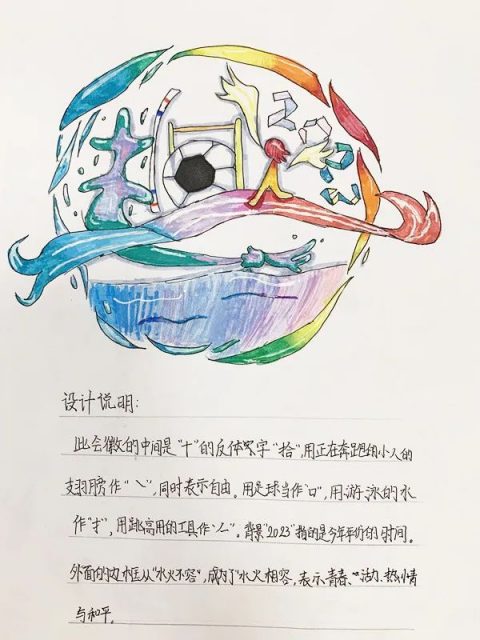 2023
设计说明:
此会徽的中间是“十”的反体字“拾”,用正在奔跑的小人的
翅膀作“乀”,同时表示自由。用足球当作“口”,用游泳的水
作“扌”,用跳高用的工具作“𠆢”。背景“2023”指的是今年平价的时间。
外面的边框从“水火不容”,成为了“水火相容”,表示青春、活力、热情
与和平。